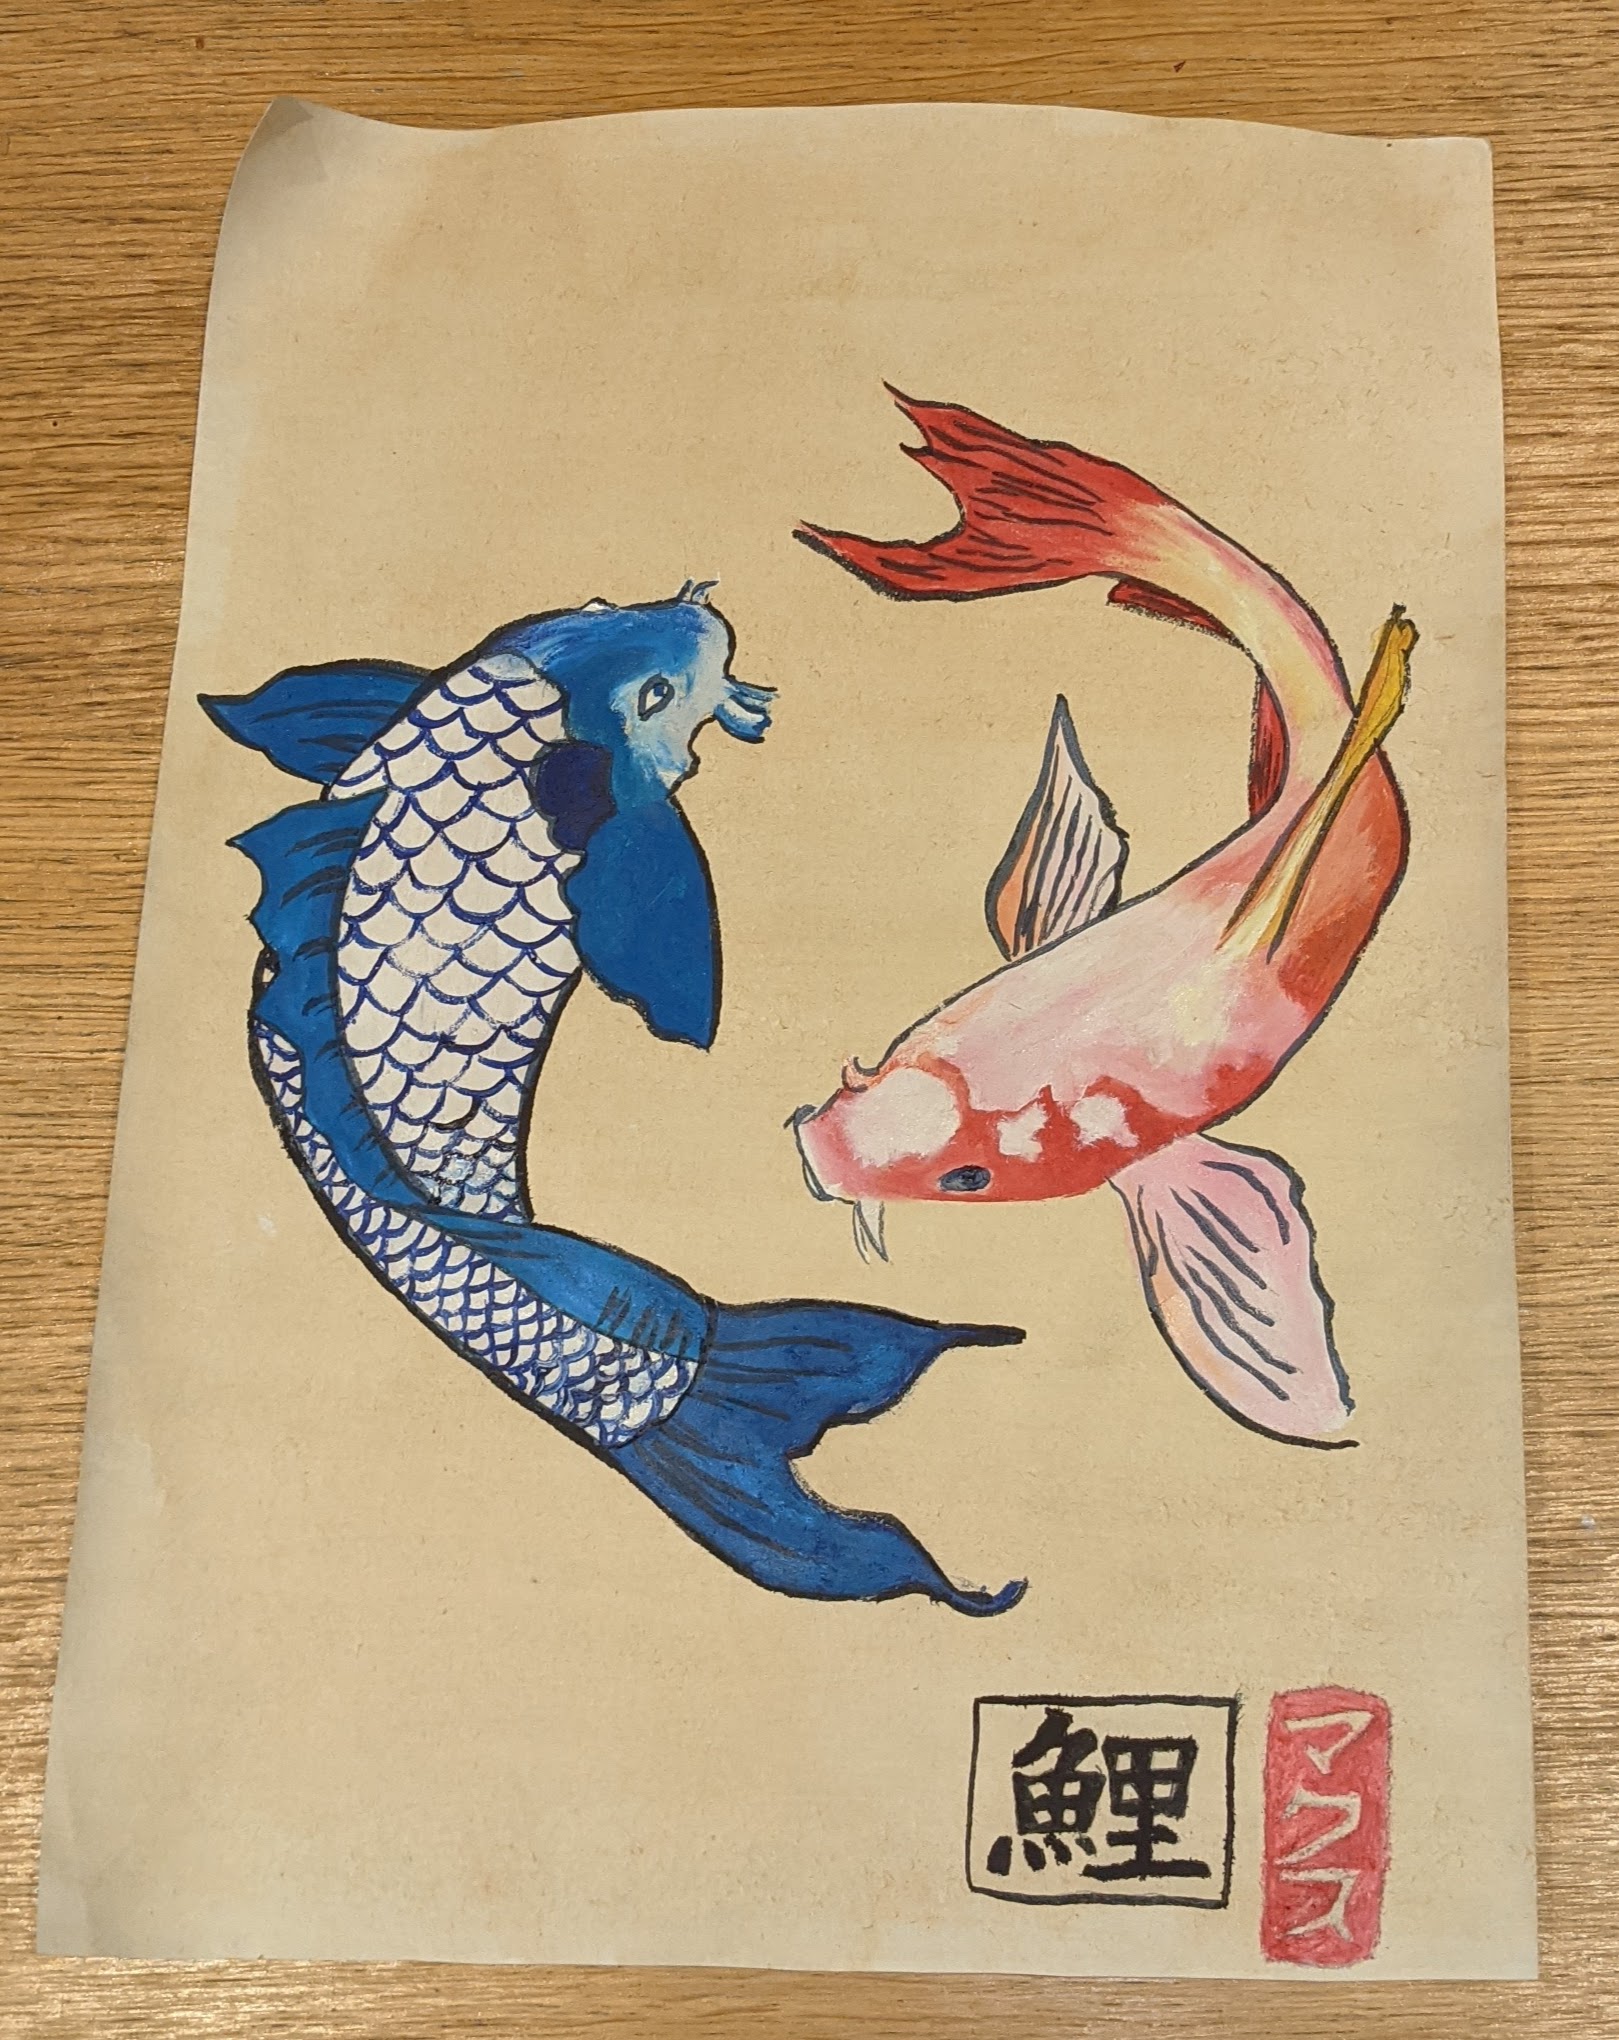 鯉
マクス